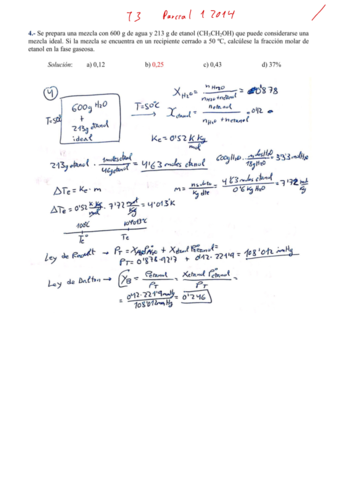 T3 Parcial 1 2014
4.- Se prepara una mezcla con 600 g de agua y 213 g de etanol (CH3CH2OH) que puede considerarse una
mezcla ideal. Si la mezcla se encuentra en un recipiente cerrado a 50 °C, calcúlese la fracción molar de
etanol en la fase gaseosa.
Solución: a) 0,12 b) 0,25 c) 0,43 d) 37%
④
T=50ºC
600g H2O
+
213g etanol
ideal
T=50ºC
X H2O = nH2O / = 0'878
X etanol = netanol / = 0'12
Ke = 0'52 K Kg / mol
213g etanol · 1mol etanol / 46g etanol = 4'63 moles etanol
600g H2O · 1mol H2O / 18g H2O = 33'3 mol H2O
ΔTe = Ke · m
m = / Kg dte = 4'63 moles etanol / 0'6 Kg H2O = 7'72 mol / Kg
ΔTe = 0'52 K Kg / mol · 7'72 mol / Kg = 4'013 K
100ºC
Te
Ley de Raoult → PT =
PT = 0'878 · + 0'12 · 221'4 = 108'012 mmHg
Ley de Dalton → YB = Petanol / PT = Xetanol Petanol / PT =
= 0'12 · 221'4 mmHg / 108'012 mmHg = 0'246